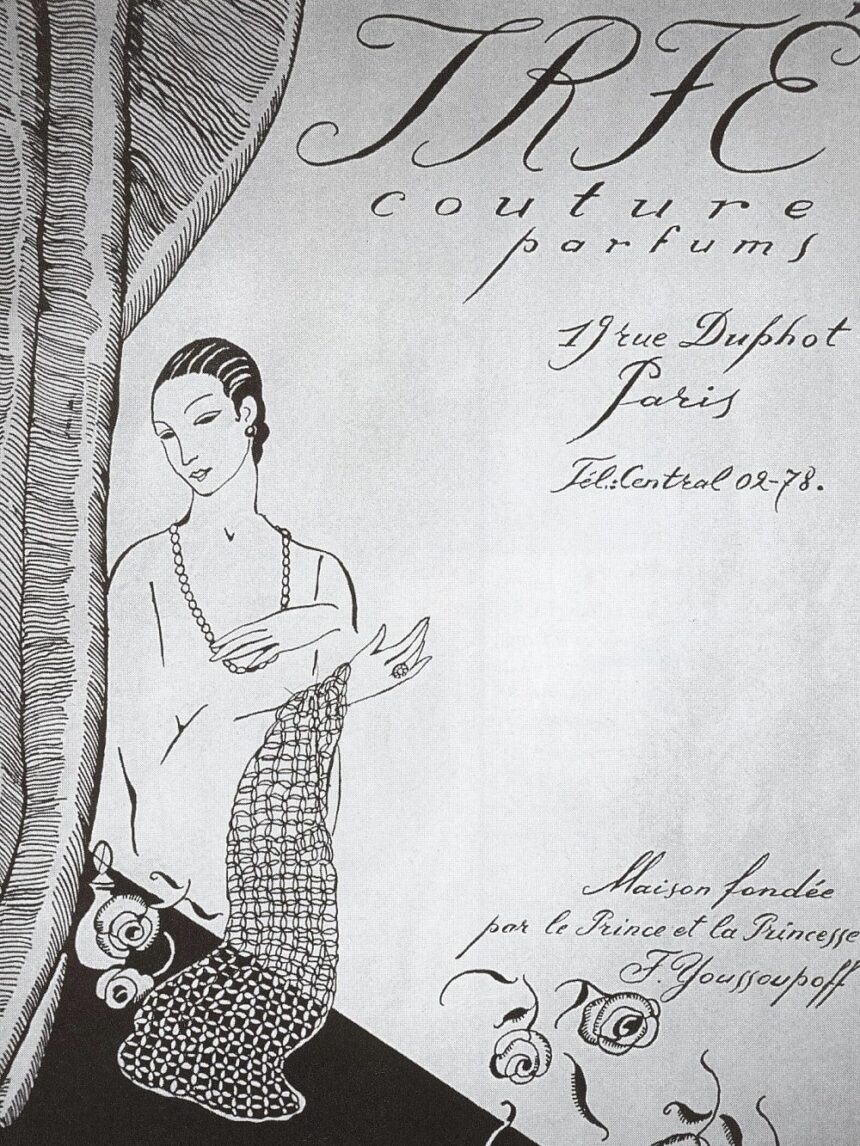 IRFÉ
couture
parfums
19 rue Duphot
Paris
Tél.: Central 02-78.
Maison fondée
par le Prince et la Princesse
F. Youssoupoff